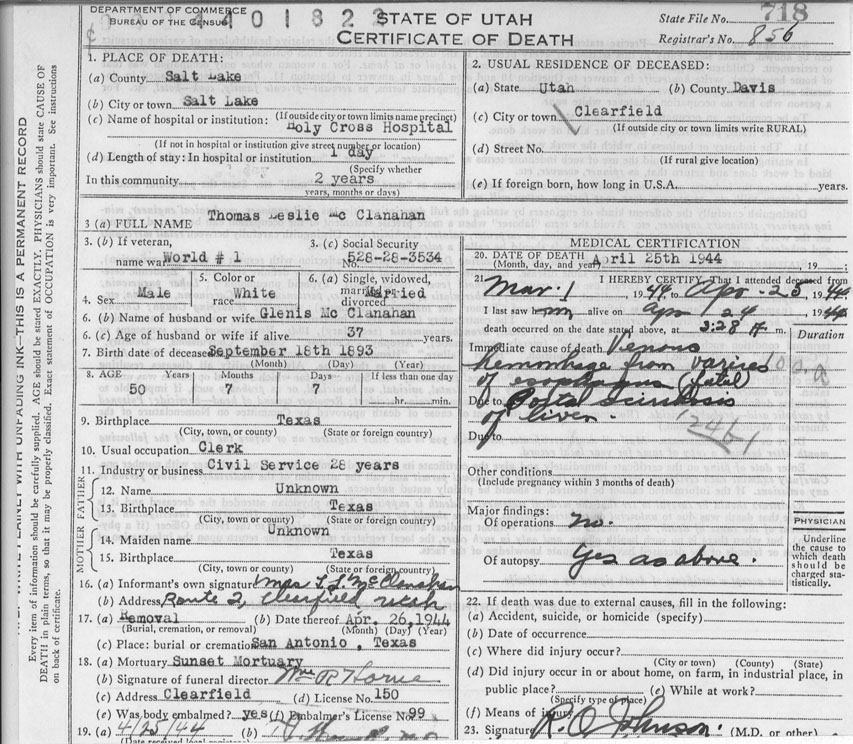 DEPARTMENT OF COMMERCE
BUREAU OF THE CENSUS
4401823
STATE OF UTAH
CERTIFICATE OF DEATH
State File No. 718
Registrar's No. 856
1. PLACE OF DEATH:
(a) County Salt Lake
(b) City or town Salt Lake
(If outside city or town limits name precinct)
(c) Name of hospital or institution: Holy Cross Hospital
(If not in hospital or institution give street number or location)
(d) Length of stay: In hospital or institution 1 day
(Specify whether
In this community 2 years
years, months or days)
2. USUAL RESIDENCE OF DECEASED:
(a) State Utah (b) County Davis
(c) City or town Clearfield
(If outside city or town limits write RURAL)
(d) Street No.
(If rural give location)
(e) If foreign born, how long in U.S.A. years.
3 (a) FULL NAME Thomas Leslie Mc Clanahan
3. (b) If veteran, name war World # 1
3. (c) Social Security No. 528-28-3534
4. Sex Male
5. Color or race White
6. (a) Single, widowed, married or divorced Married
6. (b) Name of husband or wife Glenis Mc Clanahan
6. (c) Age of husband or wife if alive 37 years.
7. Birth date of deceased September 18th 1893
(Month) (Day) (Year)
8. AGE Years Months Days If less than one day
50 7 7 hr. min.
9. Birthplace Texas
(City, town, or county) (State or foreign country)
10. Usual occupation Clerk
11. Industry or business Civil Service 28 years
FATHER
12. Name Unknown
13. Birthplace Texas
(City, town or county) (State or foreign country)
MOTHER
14. Maiden name Unknown
15. Birthplace Texas
(City, town or county) (State or foreign country)
16. (a) Informant's own signature Mrs T L McClanahan
(b) Address Route 2, Clearfield Utah
17. (a) Removal (b) Date thereof Apr. 26, 1944
(Burial, cremation, or removal) (Month) (Day) (Year)
(c) Place: burial or cremation San Antonio, Texas
18. (a) Mortuary Sunset Mortuary
(b) Signature of funeral director Wm R Horne
(c) Address Clearfield (d) License No. 150
(e) Was body embalmed? yes (f) Embalmer's License No. 99
19. (a) 4/25/44 (b)
(Date received local registrar)
MEDICAL CERTIFICATION
20. DATE OF DEATH April 25th 1944
(Month, day, and year) 19
21 I HEREBY CERTIFY, That I attended deceased from
Mar. 1, 1944, to Apr-25, 1944
I last saw him alive on Apr 24, 1944
death occurred on the date stated above, at 3:28 m.
Duration
Immediate cause of death Venous
hemorrhage from varices
of esophagus (fatal)
Due to Portal scirrosis
of liver.
1246 1
Due to
Other conditions
(Include pregnancy within 3 months of death)
Major findings:
Of operations no.
Of autopsy Yes as above.
PHYSICIAN
Underline
the cause to
which death
should be
charged sta-
tistically.
22. If death was due to external causes, fill in the following:
(a) Accident, suicide, or homicide (specify)
(b) Date of occurrence
(c) Where did injury occur?
(City or town) (County) (State)
(d) Did injury occur in or about home, on farm, in industrial place, in
public place? (e) While at work?
(Specify type of place)
(f) Means of injury
23. Signature R. O. Johnson. (M.D. or other)
WRITE PLAINLY WITH UNFADING INK—THIS IS A PERMANENT RECORD
Every item of information should be carefully supplied. AGE should be stated EXACTLY. PHYSICIANS should state CAUSE OF
DEATH in plain terms, so that it may be properly classified. Exact statement of OCCUPATION is very important. See instructions
on back of certificate.